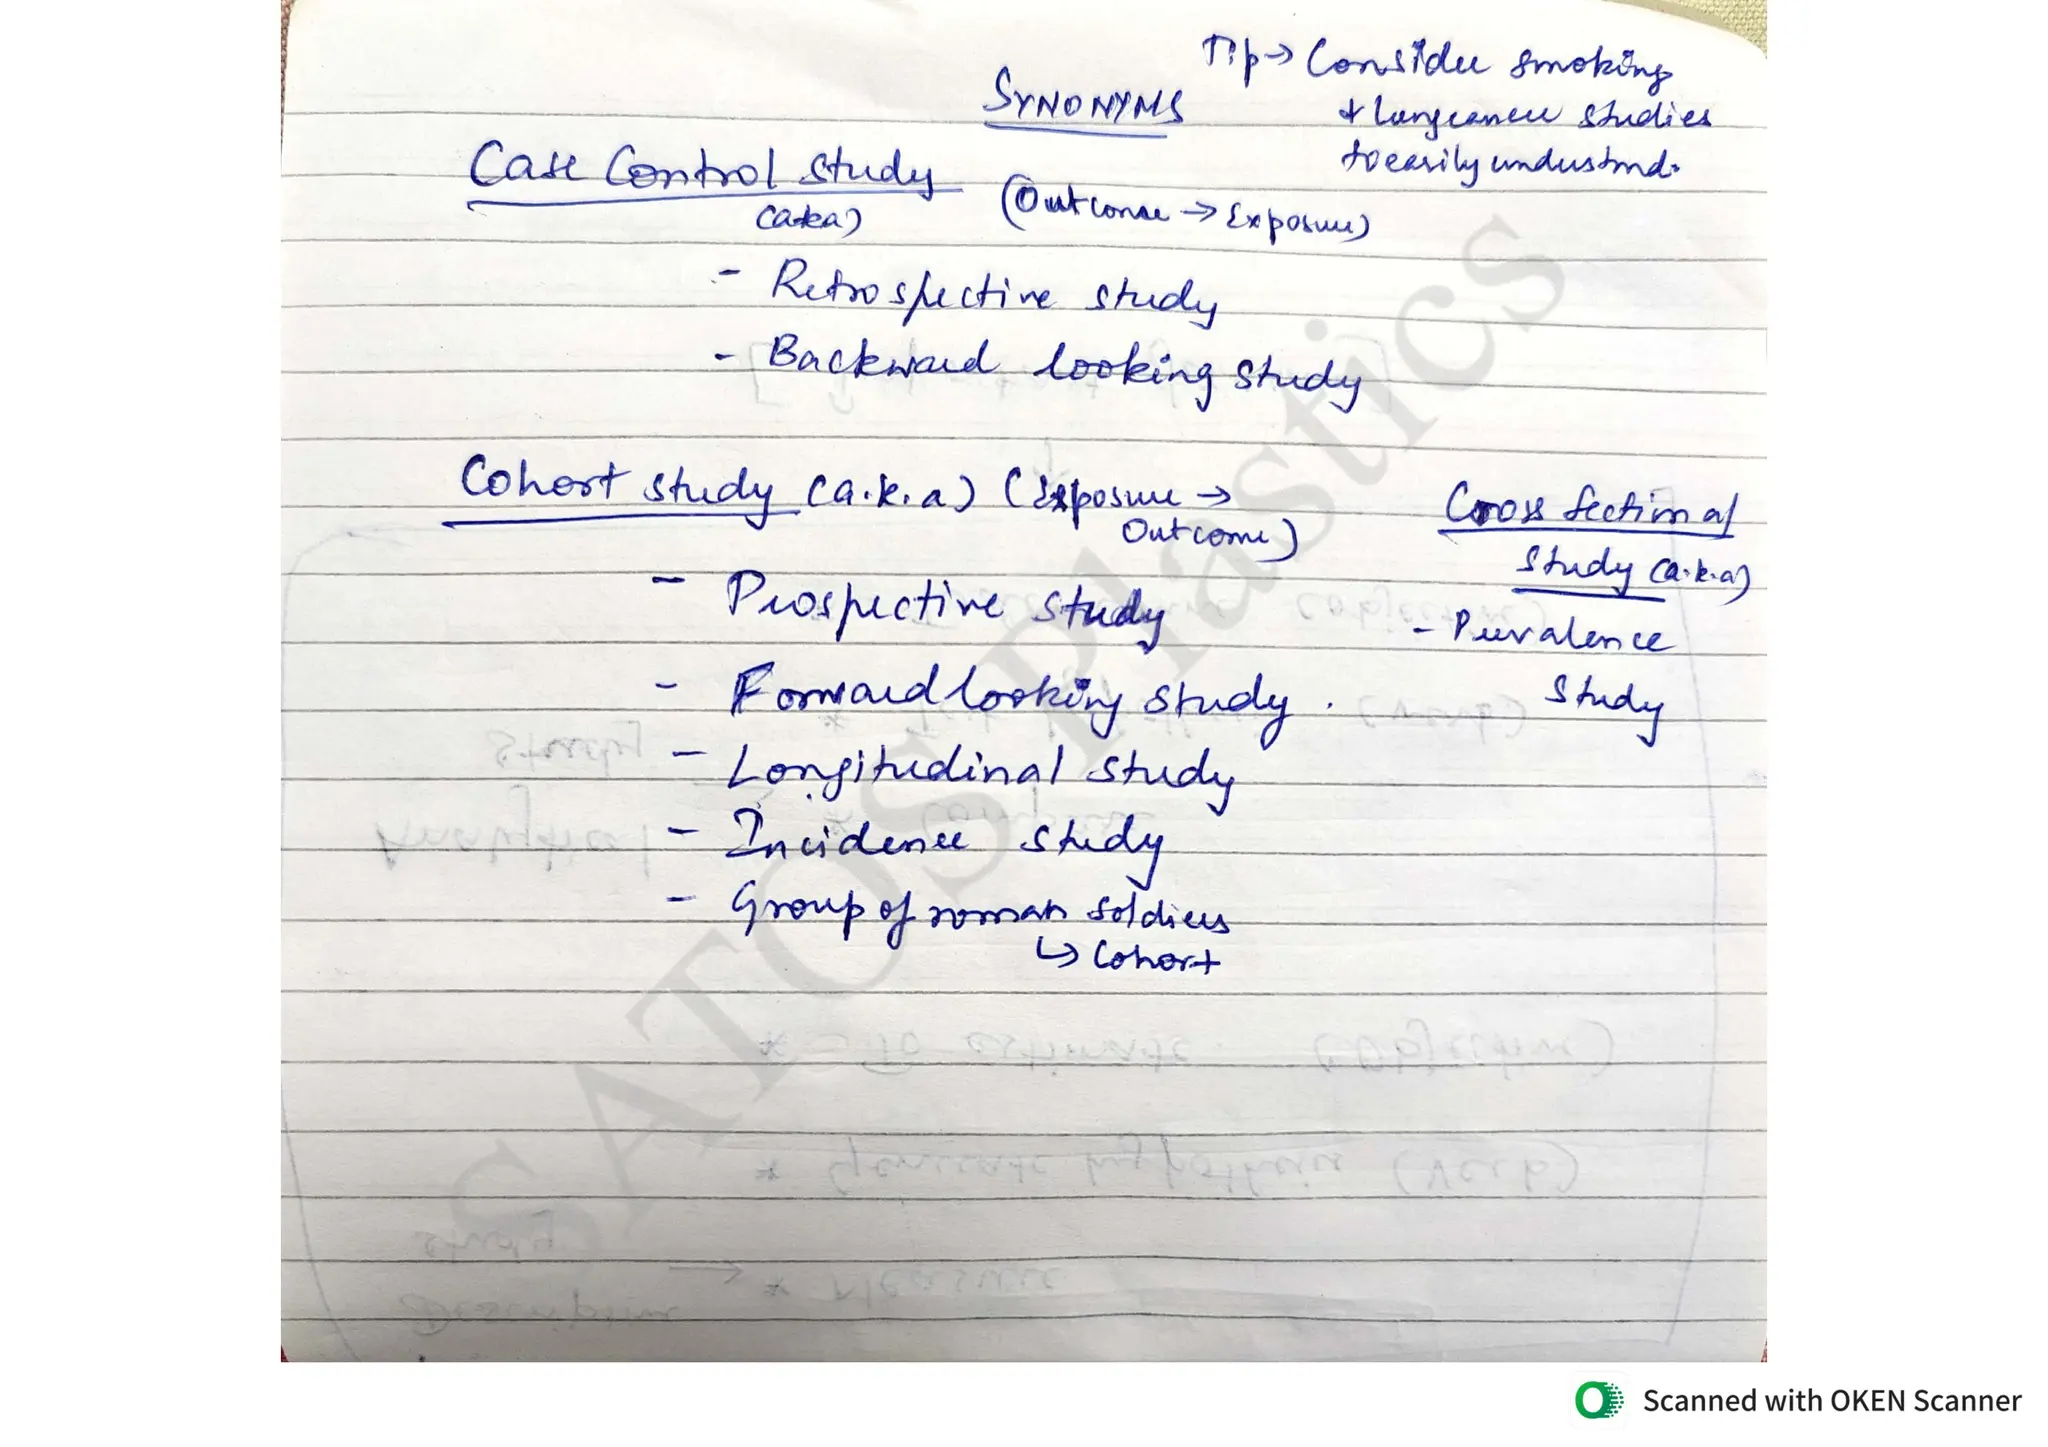 Tip → Consider smoking
+ lung cancer studies
to easily understand.
SYNONYMS
Case Control study
(a.k.a)
(Outcome → Exposure)
- Retrospective study
- Backward looking study
Cohort study (a.k.a) (Exposure →
Outcome)
- Prospective study
- Forward looking study.
- Longitudinal study
- Incidence study
- Group of roman soldiers
↳ Cohort
Cross Sectional
Study (a.k.a)
- Prevalence
Study
SATOS Plastics
Scanned with OKEN Scanner